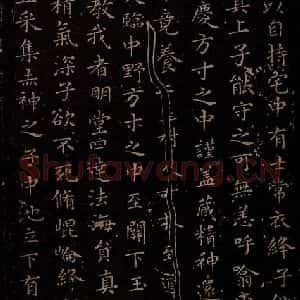 以自持宅中有士常衣絳子
其上子能守之可無恙呼噏
慶方寸之中謹蓋藏精神還
竟養子玉樹
臨中野方寸之中至關下玉
教我者明堂四達法海員真
精氣深子欲不死脩崐崘絳
采集赤神之子中池立下有
Shufawang.CN